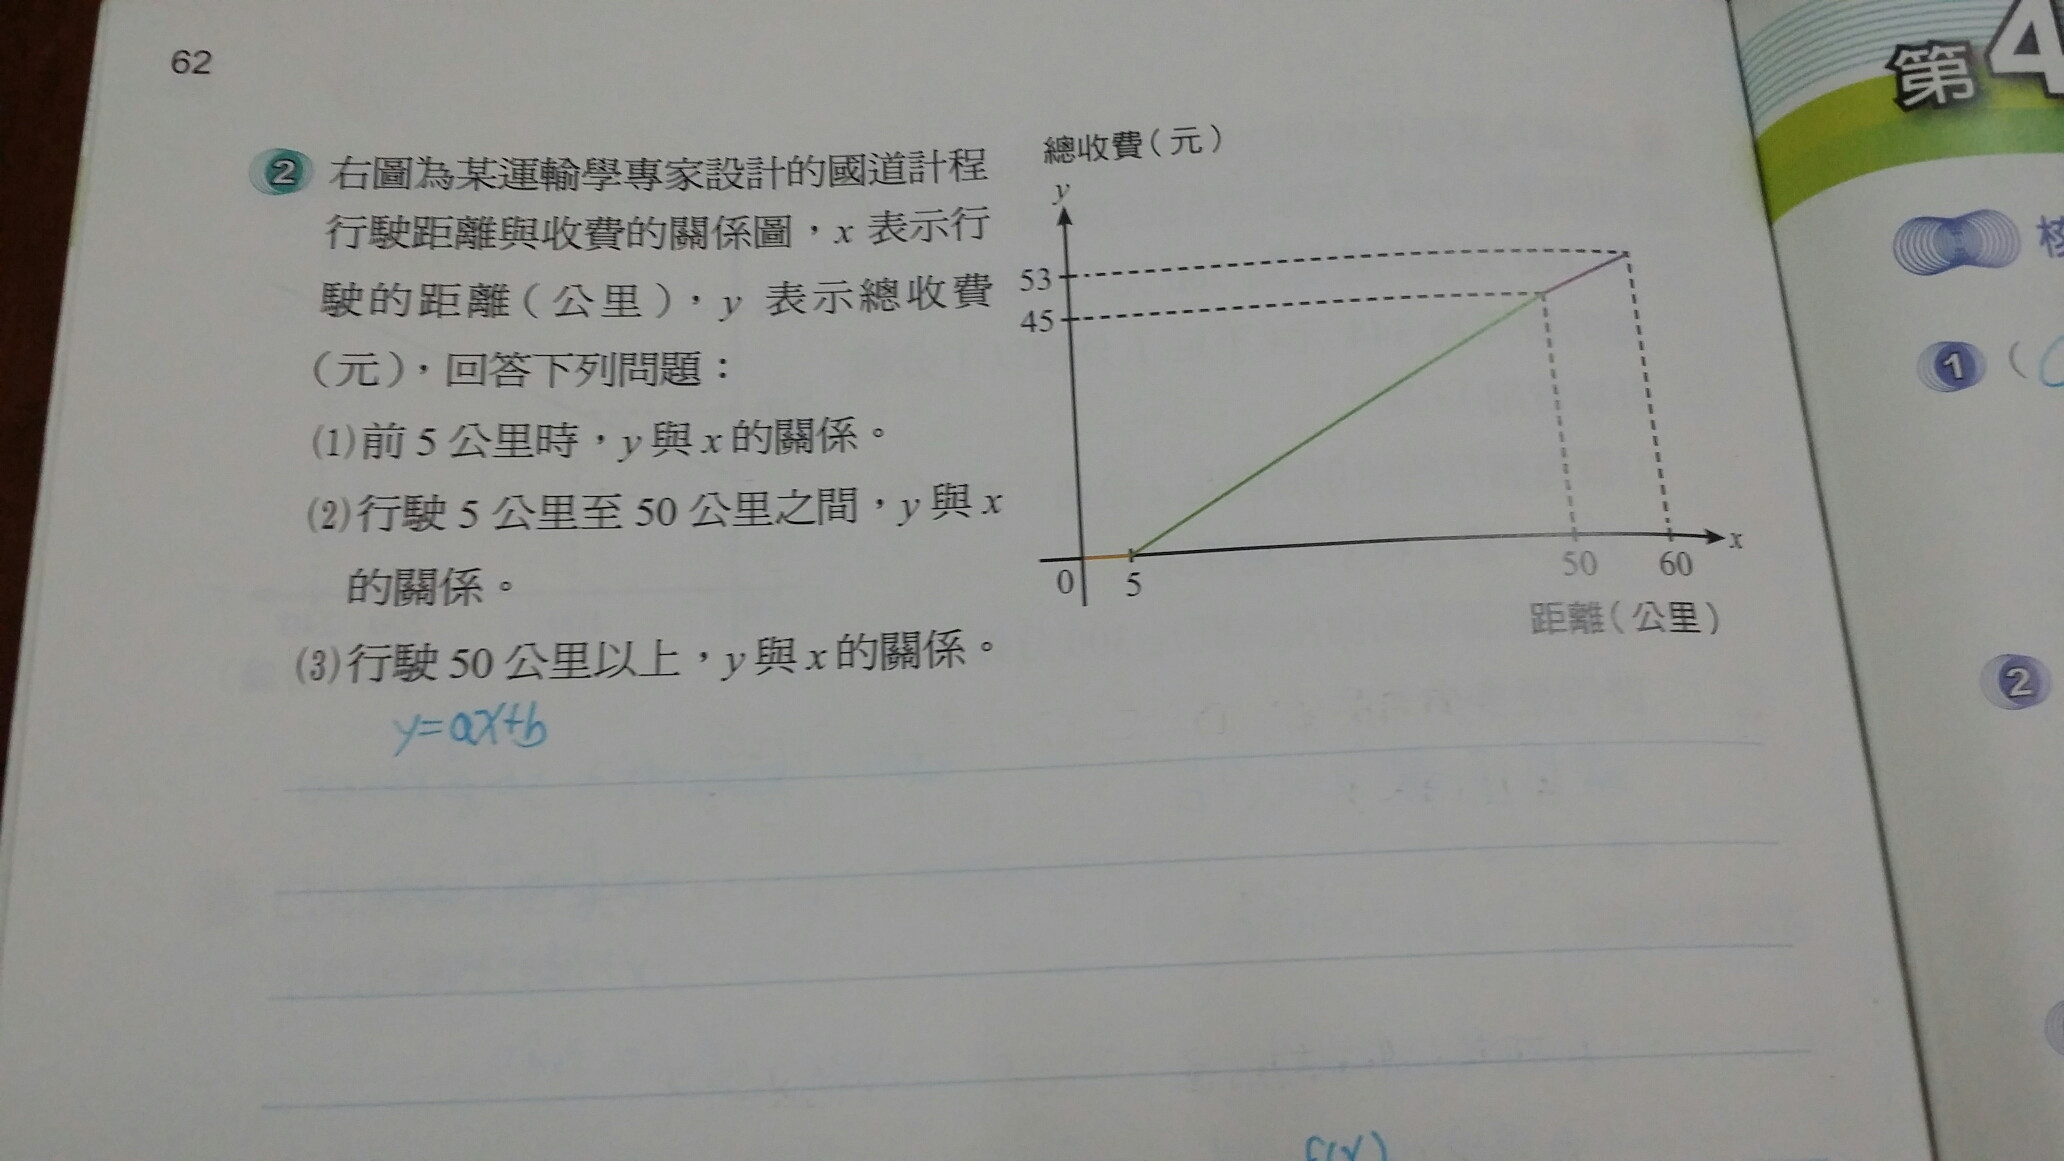 62
第4
總收費(元)
2 右圖為某運輸學專家設計的國道計程
行駛距離與收費的關係圖,x 表示行
駛的距離(公里),y 表示總收費
(元),回答下列問題:
(1)前 5 公里時,y 與 x 的關係。
(2)行駛 5 公里至 50 公里之間,y 與 x
的關係。
(3)行駛 50 公里以上,y 與 x 的關係。
y=ax+b
y
53
45
0
5
50
60
x
距離(公里)
f(x)
1 (
2